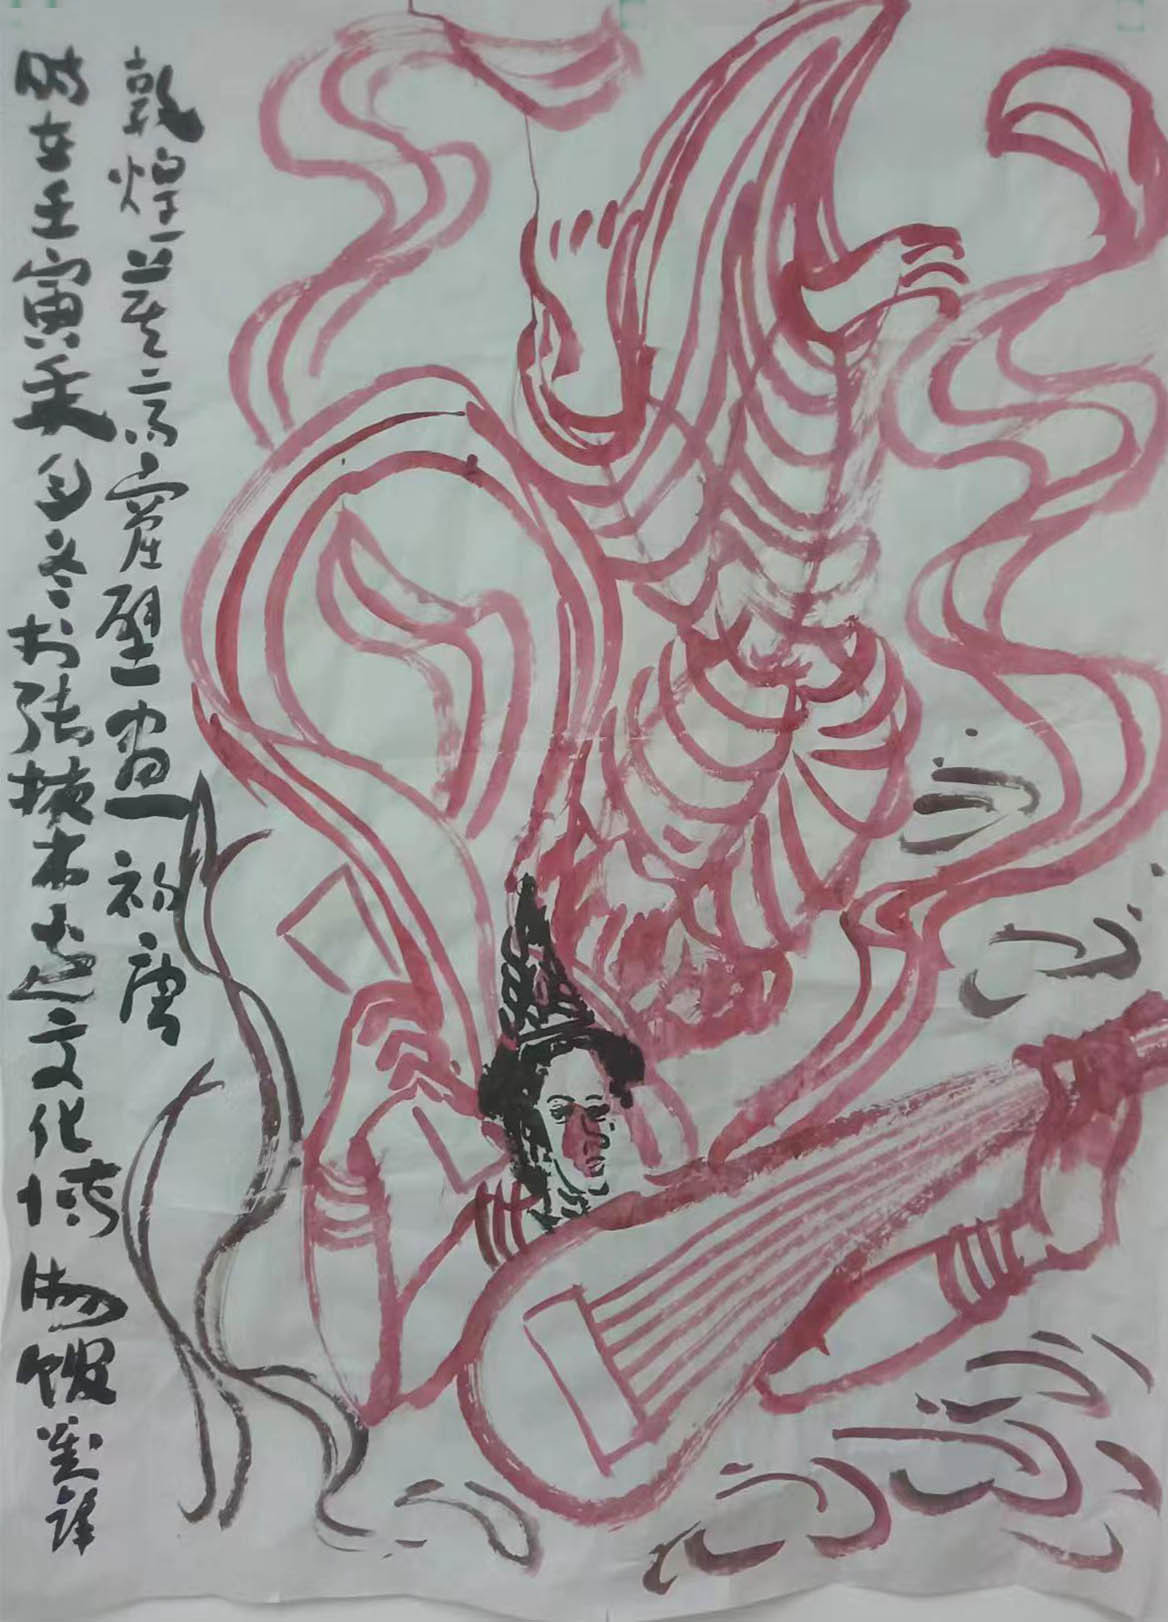 敦煌莫高窟壁画初唐
时在壬寅年自冬于张掖木塔文化博物馆